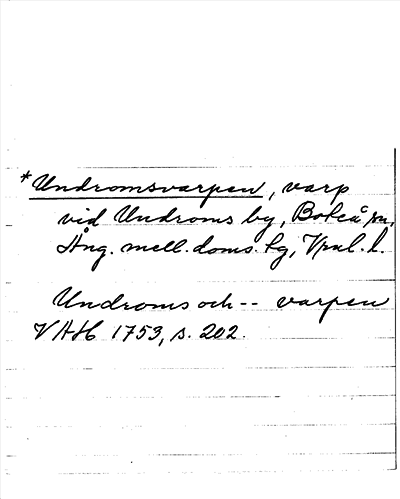 *Undromsvarpen, varp
vid Undroms by, Boteå sn,
Ång. mell. doms. tg, Vnl. l.
Undroms och -- varpen
VAH 1753, s. 202.